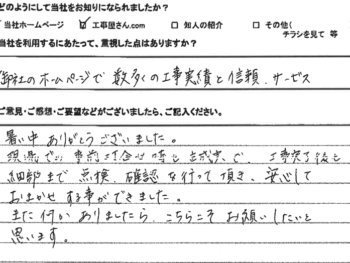 どのようにして当社をお知りになられましたか?
当社ホームページ ☑ 工事屋さん.com □ 知人の紹介 □ その他(
チラシを見て 等
当社を利用するにあたって、重視した点はありますか?
御社のホームページで 数多くの工事実績と信頼、サービス
ご意見・ご感想・ご要望などがございましたら、ご記入ください。
暑い中 ありがとうございました。
現場での 事前 打合せ 時も 工事完了後も
細部まで 点検、確認 を行って頂き、安心して
おまかせ する事ができました。
また 何か ありましたら、こちらこそ お願いしたいと
思います。